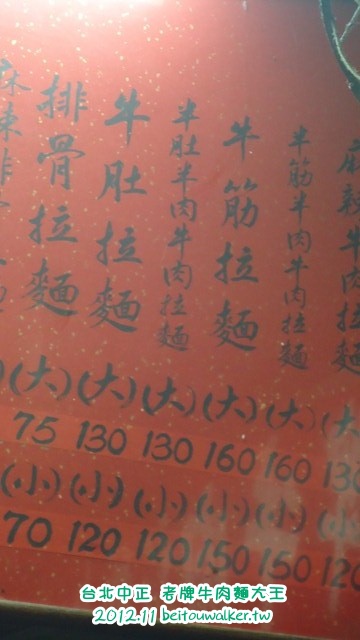 麻辣牛肉拉麵
半筋半肉牛肉拉麵
牛筋拉麵
半肚半肉牛肉拉麵
牛肚拉麵
排骨拉麵
(大) (大) (大) (大) (大) (大)
75 130 130 160 160 130
(小) (小) (小) (小) (小) (小)
70 120 120 150 150 120
台北中正 老牌牛肉麵大王
2012.11 beitouwalker.tw